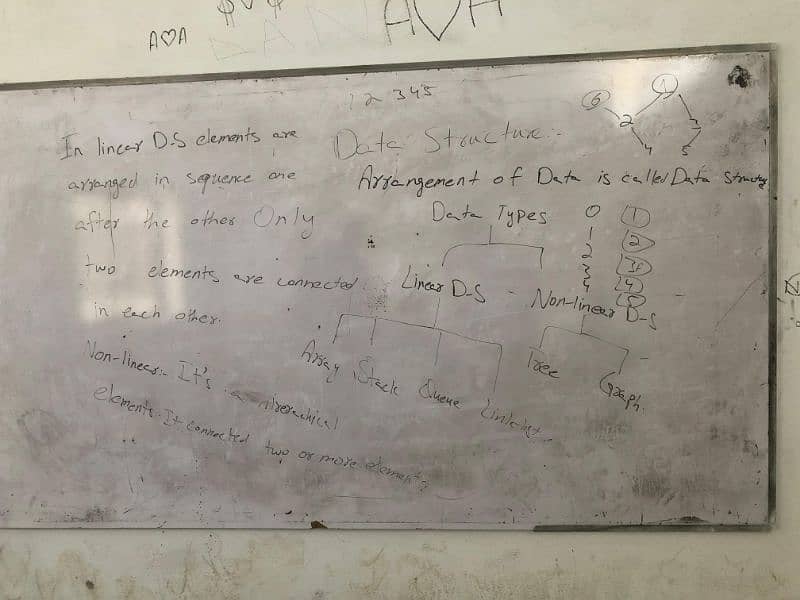 A♡A
A♡A
1 2 345
In linear D-S elements are
arranged in sequence one
after the other Only
two elements are connected
in each other.
Non-linear:- It's a hirerachical
elements. It connected two or more elements
Data Structure:-
Arrangement of Data is called Data
Data Types
Linear D-S
Non-linear D-S
Array
Stack
Queue
Tree
Graph.
0 1
1 2
2 3
3 4
4 5
6
1
2
4
5